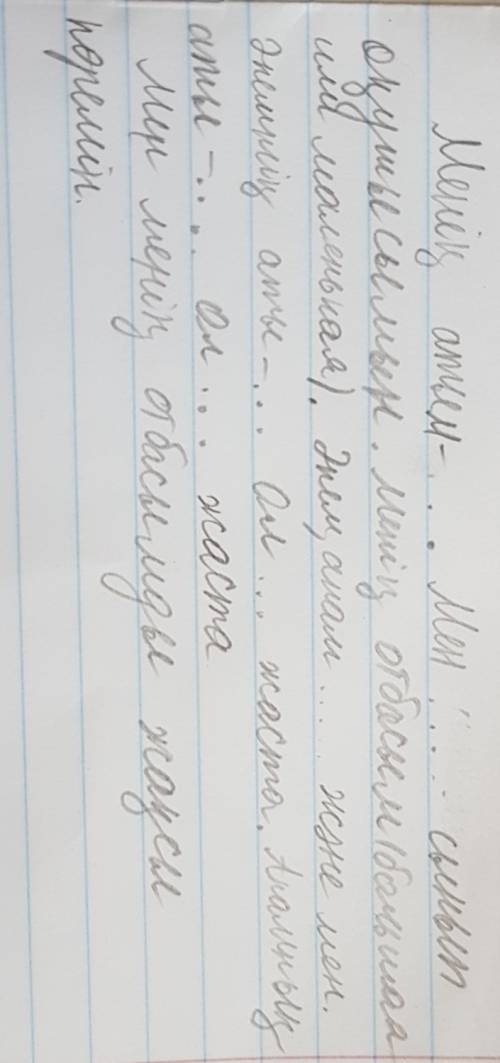 Менің атым - ... Мен ... сынып
оқушысымын. Менің отбасым (большая
или маленькая). Әкем, анам .... жне мен.
Әкемнің аты - ... Ол ... жаста. Анамның
аты - .... Ол ... жаста
Мен менің отбасымды жақсы
көремін.